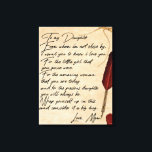 To my Daughter
Even when I'm not close by,
I want you to know I love you
For the little girl that
you once were
For the amazing woman
that you are today
and to the precious daughter
you will always be
Wrap yourself up in this
and consider it a big hug
Love, Mom!